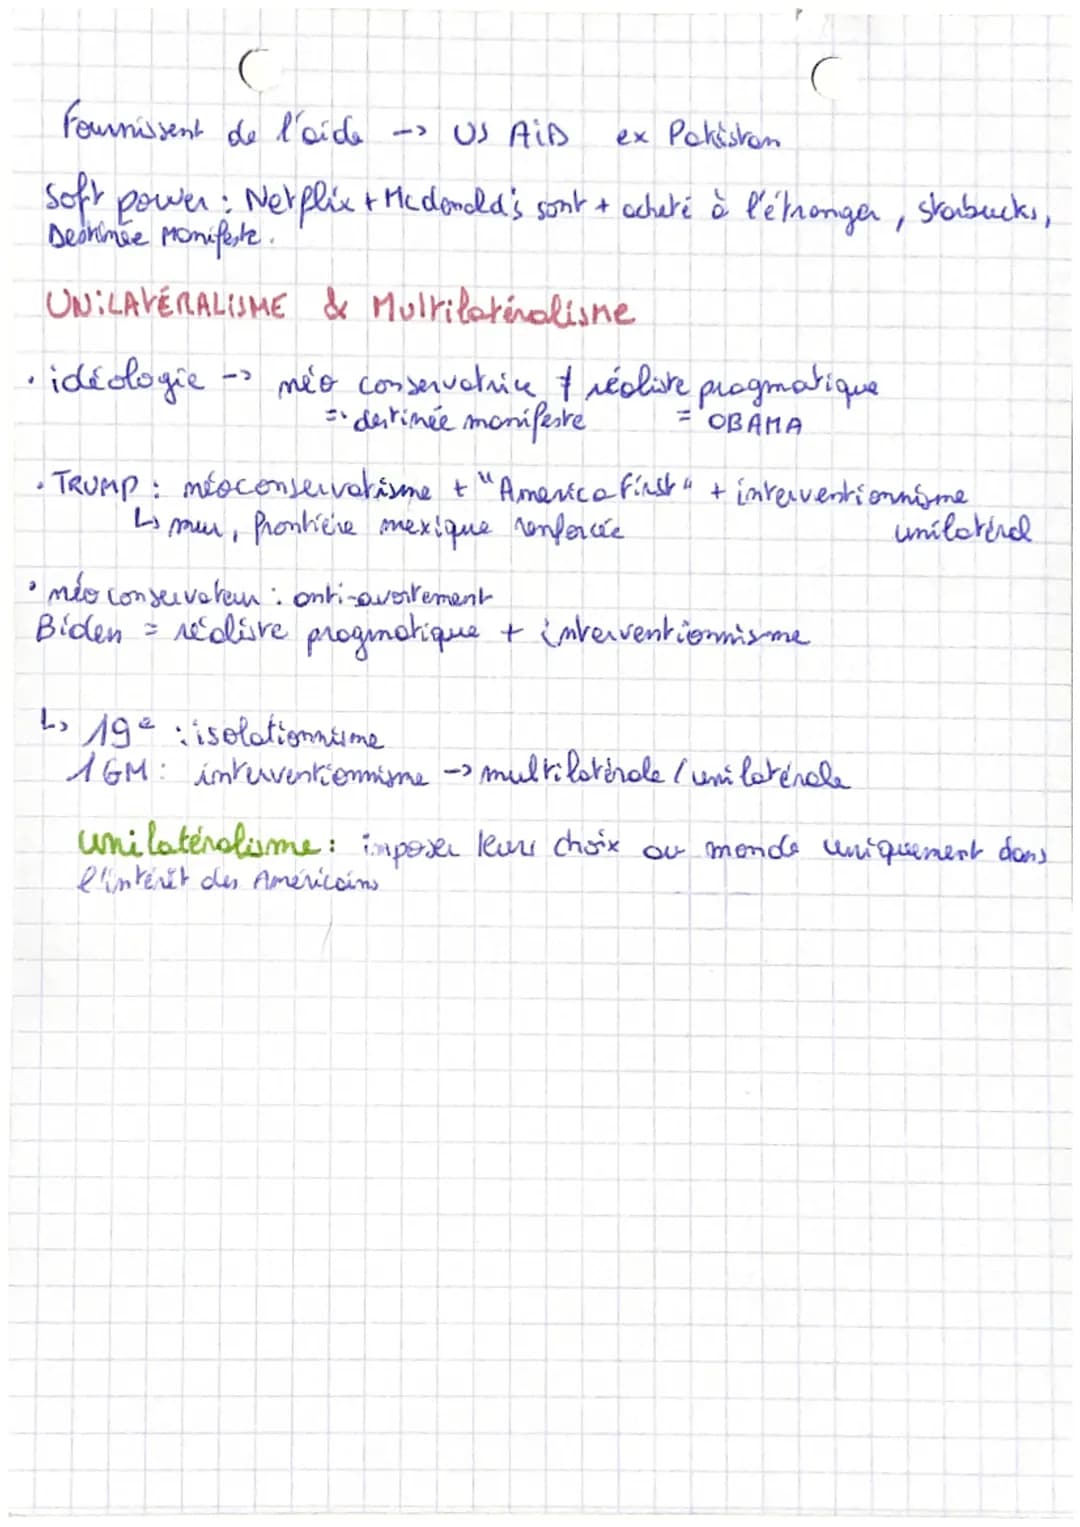 Fournissent de l'aide -> US AiD ex Pakistan
Soft power : Netflix + Mcdonald's sont + acheté à l'étranger, starbucks,
Destinée Manifeste.
UNiLATÉRALISME & Multilatéralisme
• idéologie -> néo conservatrice ≠ réaliste pragmatique
=> destinée manifeste = OBAMA
• TRUMP : néoconservatisme + "America first" + interventionnisme
↳ mur, frontière mexique renforcée unilatéral
• néo conservateur : anti-avortement
Biden = réaliste pragmatique + interventionnisme
↳ 19e : isolationnisme
1GM : interventionnisme -> multilatérale / unilatérale
unilatéralisme : imposer leurs choix au monde uniquement dans
l'intérêt des Américains